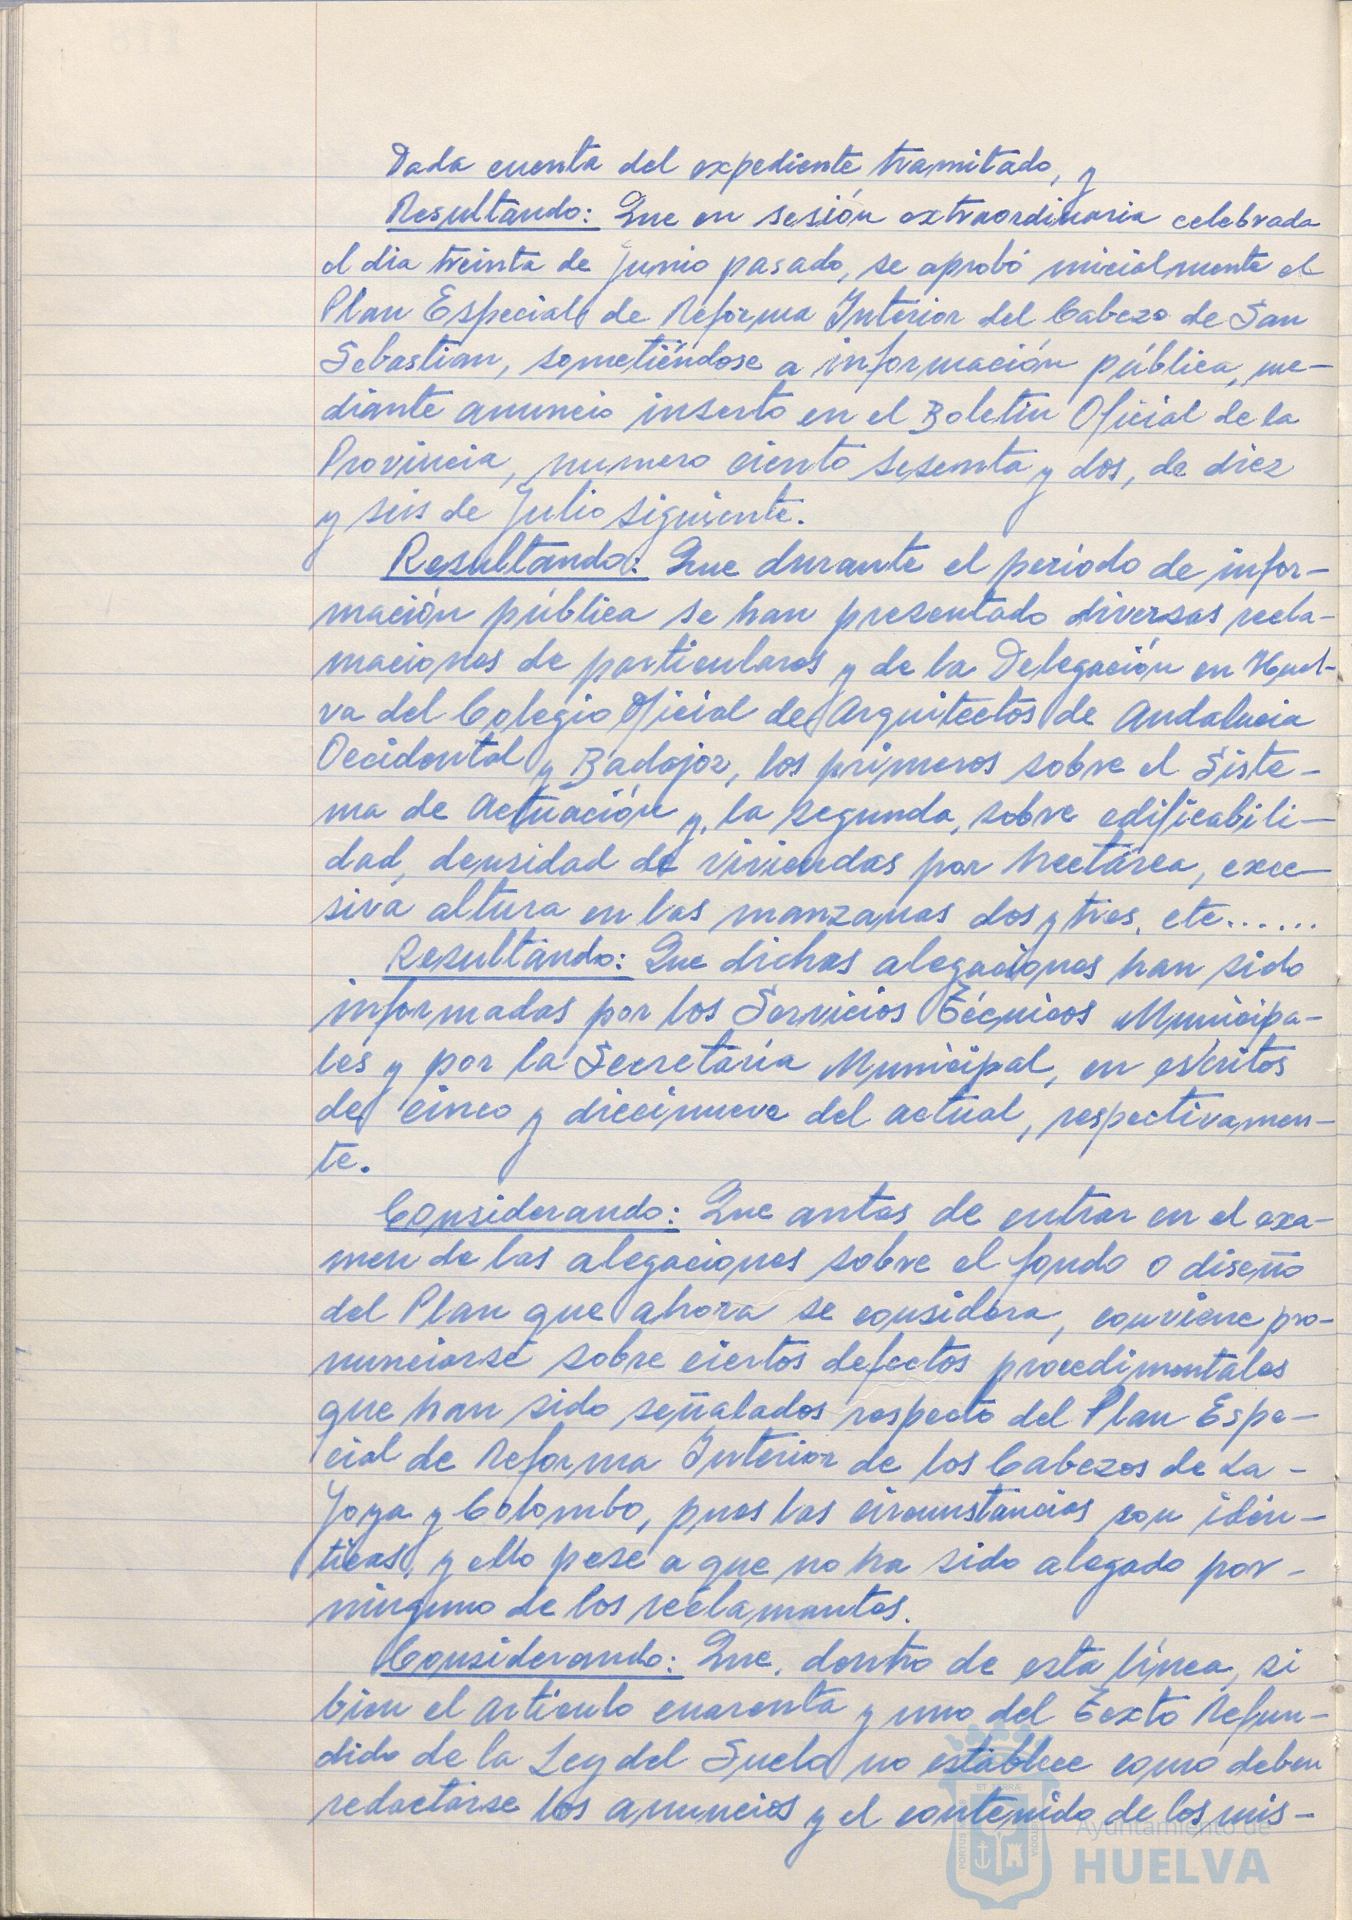 Dada cuenta del expediente tramitado, y
Resultando: Que en sesión extraordinaria celebrada
el dia treinta de Junio pasado, se aprobó inicialmente el
Plan Especial de Reforma Interior del Cabezo de San
Sebastian, sometiéndose a información pública, me-
diante anuncio inserto en el Boletin Oficial de la
Provincia, numero ciento sesenta y dos, de diez
y seis de Julio siguiente.
Resultando: Que durante el período de infor-
mación pública se han presentado diversas recla-
maciones de particulares y de la Delegación en Huel-
va del Colegio Oficial de Arquitectos de Andalucia
Occidental y Badajoz, los primeros sobre el Siste-
ma de Actuación y, la segunda, sobre edificabili-
dad, densidad de viviendas por hectárea, exce-
siva altura en las manzanas dos y tres, etc......
Resultando: Que dichas alegaciones han sido
informadas por los Servicios Técnicos Municipa-
les y por la Secretaría Municipal, en escritos
de cinco y diecinueve del actual, respectivamen-
te.
Considerando: Que antes de entrar en el exa-
men de las alegaciones sobre el fondo o diseño
del Plan que ahora se considera, conviene pro-
nunciarse sobre ciertos defectos procedimentales
que han sido señalados respecto del Plan Espe-
cial de Reforma Interior de los Cabezos de La-
Joya y Colombo, pues las circunstancias son idén-
ticas, y ello pese a que no ha sido alegado por-
ninguno de los reclamantes.
Considerando: Que, dentro de esta línea, si
bien el artículo cuarenta y uno del Texto Refun-
dido de la Ley del Suelo no establece como deben
redactarse los anuncios y el contenido de los mis-
Ayuntamiento de
HUELVA